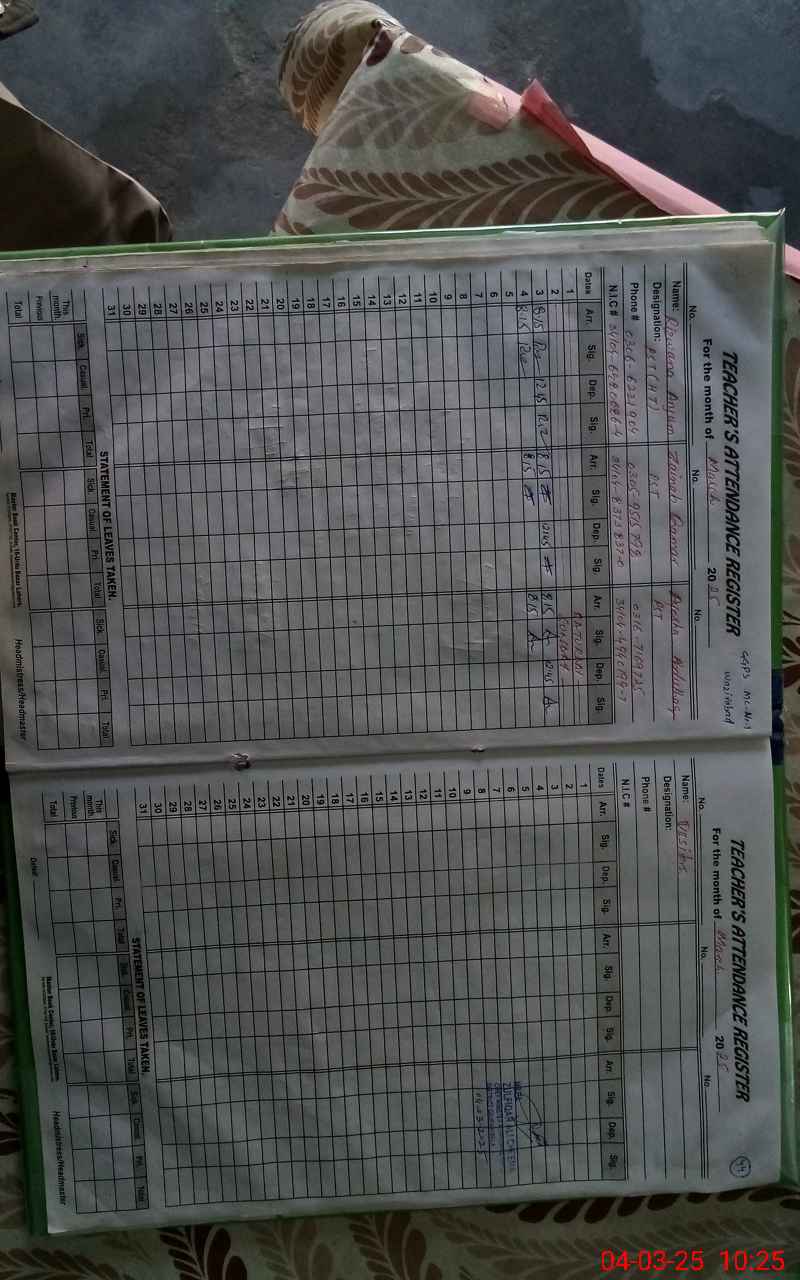 TEACHER'S ATTENDANCE REGISTER
GAPS MC-Nr-1
Wazirabad
For the month of March 2025
No. No. No.
Name: Anjum Zainab Qamar Ayesha
Designation: PST (HT) PST PST
Phone # 0306-6221904
N.I.C #
Dates Arr. Sig. Dep. Sig. Arr. Sig. Dep. Sig. Arr. Sig. Dep. Sig.
1 SATURDAY
2 SUNDAY
3 8:15 12:45 8:15 12:45 8:15 12:45
4 8:15 8:15 8:15
5
6
7
8
9
10
11
12
13
14
15
16
17
18
19
20
21
22
23
24
25
26
27
28
29
30
31
STATEMENT OF LEAVES TAKEN.
Sick Casual Pri. Total Sick Casual Pri. Total Sick Casual Pri. Total
This month
Previous
Total
Headmistress/Headmaster
TEACHER'S ATTENDANCE REGISTER
44
For the month of March 2025
No. No. No.
Name: Visitor
Designation:
Phone #
N.I.C #
Dates Arr. Sig. Dep. Sig. Arr. Sig. Dep. Sig. Arr. Sig. Dep. Sig.
1
2
3
4
5
6
7
8
9
10
11
12
13
14
15
16
17
18
19
20
21
22
23
24
25
26
27
28
29
30
31
ZULFIQAR ALI CHEEMA
04-03-2025
STATEMENT OF LEAVES TAKEN.
Sick Casual Pri. Total Sick Casual Pri. Total Sick Casual Pri. Total
This month
Previous
Total
Headmistress/Headmaster
04-03-25 10:25